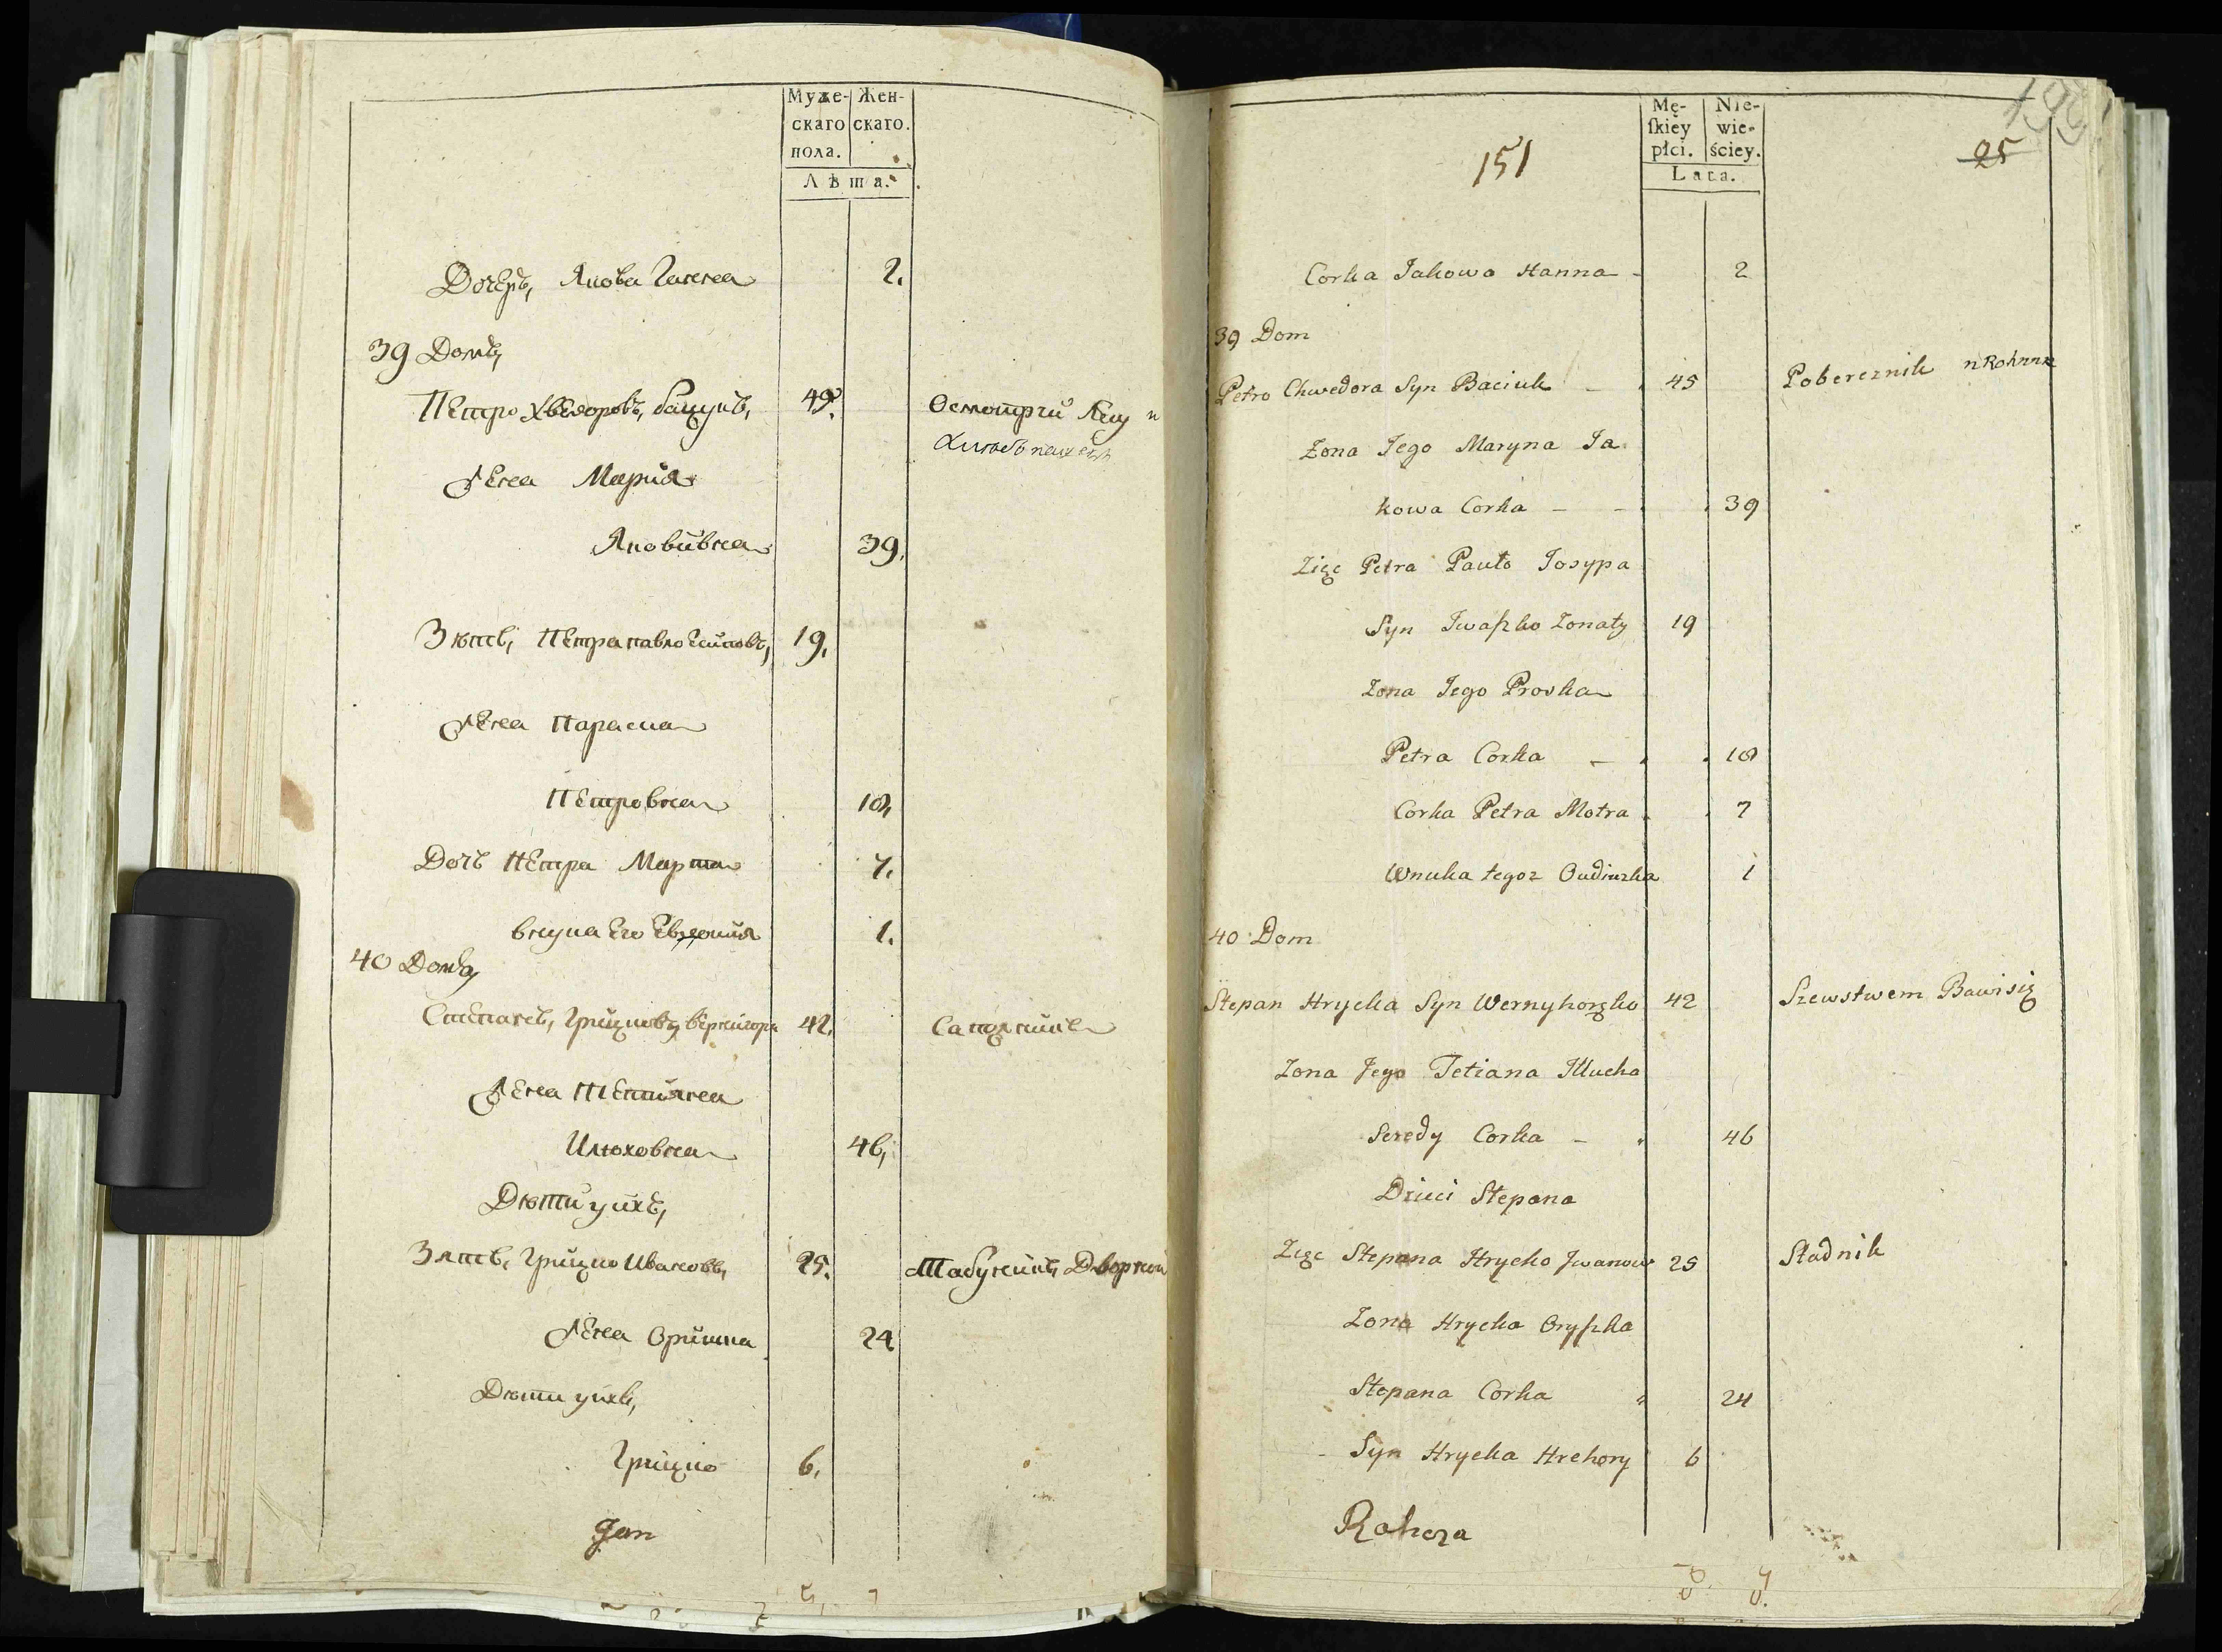 Муже-скаго пола.
Жен-скаго.
Лѣта.
Дочерь, Якова Ганна 2.
39 Домъ,
Петро Хведоровъ, бацукъ, 49.
Осмотрги Лесу и
Жена Мариа
Яковивна 39,
Зять, Петра павло Есиповъ, 19,
Жена Параска
Петровна 18,
Дочь Петра Марта 7.
внука Его Евдокиия 1.
40 Домъ
Степанъ, Грицковъ вернигора 42.
Сапожникъ
Жена Тетияна
Илюховна 46,
Дѣти ихъ,
Зять, Грицко Ивановъ, 25.
Табунникъ Дворний
Жена Оришка 24
Дѣти ихъ,
Грицко 6.
Jan
Mę-skiey płci.
Nie-wie-ściey.
Lata.
151
25
Corka Jakowa Hanna - 2
39 Dom
Petro Chwedora Syn Baciuk - 45 Pobereznik
Zona Jego Maryna Ja
kowa Corka - - 39
Zięc Petra Pawło Josypa
Syn Iwaszko Zonaty 19
Zona Jego Proska
Petra Corka - 18
Corka Petra Motra 7
Wnuka tegoz Oudiuzka 1
40 Dom
Stepan Hrycka Syn Wernyhorzko 42 Szewstwem Bawi się
Zona Jego Tetiana Illucha
Seredy Corka - 46
Dzieci Stepana
Zięc Stepana Hrycko Jwanow 25 Stadnik
Zona Hrycka Oryszka
Stepana Corka 24
Syn Hrycka Hrehory 6
Rohoza